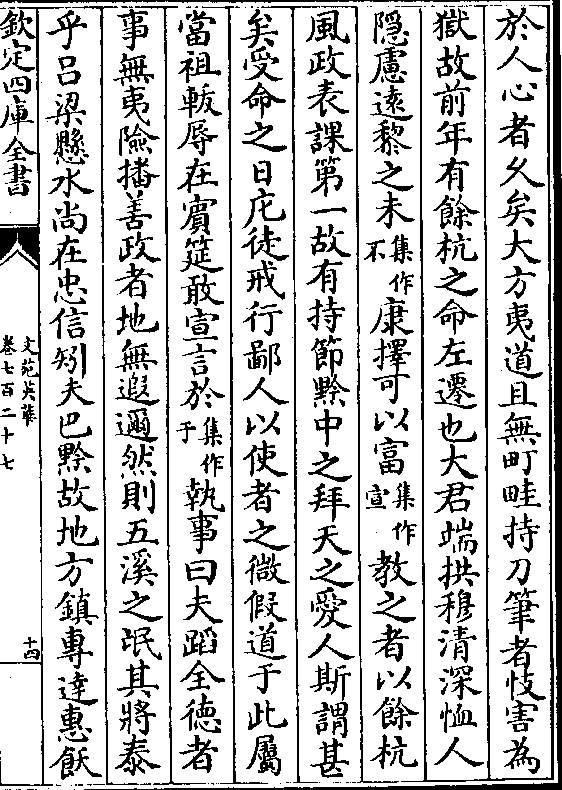 於人心者久矣大方夷道且無町畦持刀筆者忮害為
獄故前年有餘杭之命左遷也大君端拱穆清深恤人
隠慮逺黎之未集作不康擇可以富集作宣教之者以餘杭
風政表課第一故有持節黔中之拜天之愛人斯謂甚
矣受命之日庀徒戒行鄙人以使者之微假道于此屬
當祖軷辱在賓筵敢宣言於集作于執事曰夫蹈全徳者
事無夷險播善政者地無遐邇然則五溪之氓其將泰
乎吕梁懸水尚在忠信矧夫巴黔故地方鎮專達惠飫
欽定四庫全書
文苑英華
卷七百二十七
十四